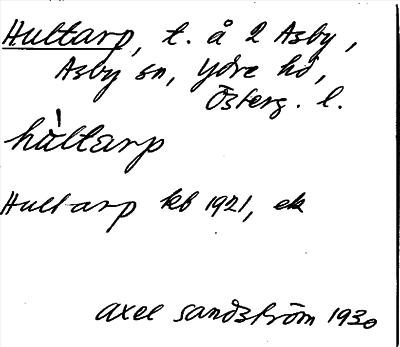 Hultarp, t. å 2 Asby,
Asby sn, Ydre hd,
Österg. l.
hàltarp
Hultarp kb 1921, ek
Axel Sandström 1930